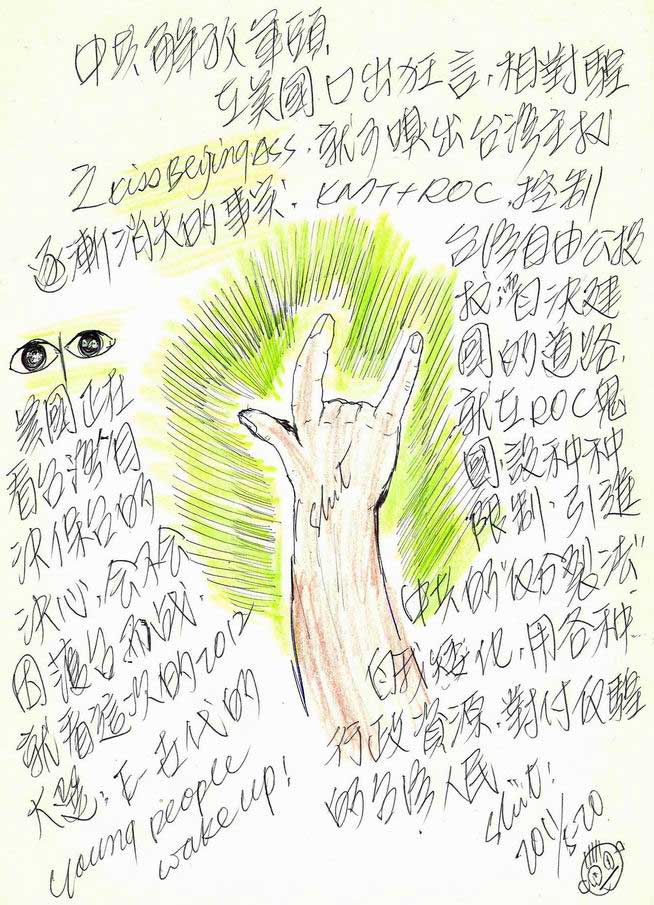 中共解放軍頭,
在美國口出狂言,相對醒
之kiss Beijing Ass,就可嗅出台湾主权
逐漸消失的事实. KMT+ROC,控制
台湾自由公投
投票自決建
國的道路,
就在ROC鬼
國,設种种
限制,引進
中共的"反分裂法"
自我矮化,用各种
行政資源,對付反醒
的台湾人民, shit!
shit
美國正在
看台灣自
決保台的
決心,会不会
因護台而战,
就看這次的2012
大選; E-世代的
young people
wake up!
2011/5-20